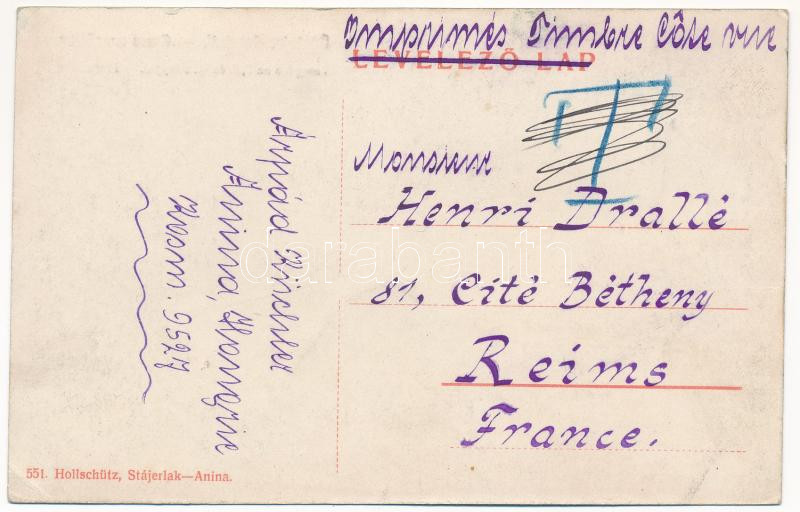 Imprimés Timbre Côte vue
LEVELEZŐ LAP
T
Monsieur
Henri Drallé
81, Cité Bétheny
Reims
France.
Árpád Richter
Anina, Hongrie
551. Hollschütz, Stájerlak—Anina.
darabanth